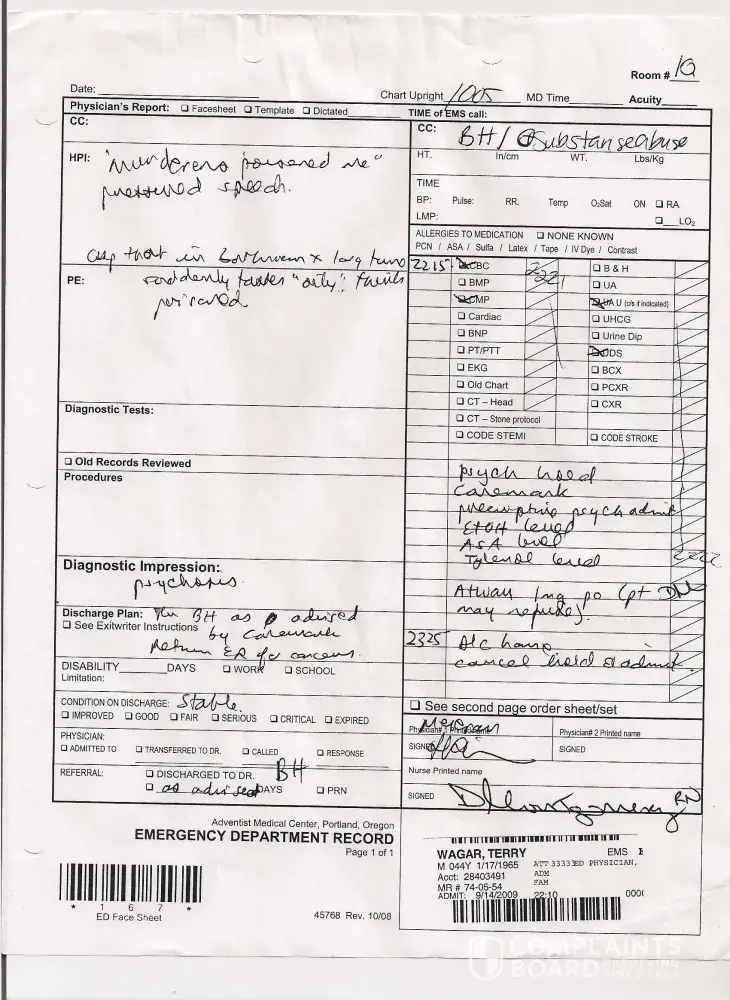 Room # 10
Date:
Chart Upright 1005 MD Time Acuity
Physician's Report: ❑ Facesheet ❑ Template ❑ Dictated
CC:
HPI: "Murderers poisoned me"
pressured speech.
in bathroom x long time
PE: suddenly tastes "salty", thinks
poisoned
Diagnostic Tests:
❑ Old Records Reviewed
Procedures
Diagnostic Impression:
psychosis.
Discharge Plan: BH as advised
❑ See Exitwriter Instructions by Caremark
Return ER for concerns.
DISABILITY DAYS ❑ WORK ❑ SCHOOL
Limitation:
CONDITION ON DISCHARGE: Stable.
❑ IMPROVED ❑ GOOD ❑ FAIR ❑ SERIOUS ❑ CRITICAL ❑ EXPIRED
PHYSICIAN:
❑ ADMITTED TO ❑ TRANSFERRED TO DR. ❑ CALLED ❑ RESPONSE
REFERRAL: ❑ DISCHARGED TO DR. BH
❑ as advised DAYS ❑ PRN
TIME of EMS call:
CC: BH / Substanse abuse
HT. In/cm WT. Lbs/Kg
TIME
BP: Pulse: RR. Temp O₂Sat ON ❑ RA
LMP: ❑ LO₂
ALLERGIES TO MEDICATION ❑ NONE KNOWN
PCN / ASA / Sulfa / Latex / Tape / IV Dye / Contrast
2215 CBC 2221 ❑ B & H
❑ BMP ❑ UA
CMP UA U (c/s if indicated)
❑ Cardiac ❑ UHCG
❑ BNP ❑ Urine Dip
❑ PT/PTT UDS
❑ EKG ❑ BCX
❑ Old Chart ❑ PCXR
❑ CT – Head ❑ CXR
❑ CT – Stone protocol
❑ CODE STEMI ❑ CODE STROKE
psych hold
Caremark
psych admit
ETOH level
ASA level
Tylenol level 2222
Ativan 1mg po (pt
may refuse).
2325 D/C home
cancel hold & admit.
❑ See second page order sheet/set
Physician# 1 Printed name Physician# 2 Printed name
SIGNED SIGNED
Nurse Printed name
SIGNED RN
Adventist Medical Center, Portland, Oregon
EMERGENCY DEPARTMENT RECORD
Page 1 of 1
* 1 6 7 *
ED Face Sheet
45768 Rev. 10/08
WAGAR, TERRY EMS
M 044Y 1/17/1965 ATT 33333ED PHYSICIAN,
Acct: 28403491 ADM
MR # 74-05-54 FAM
ADMIT: 9/14/2009 22:10 000(
COMPLAINTS
BOARD